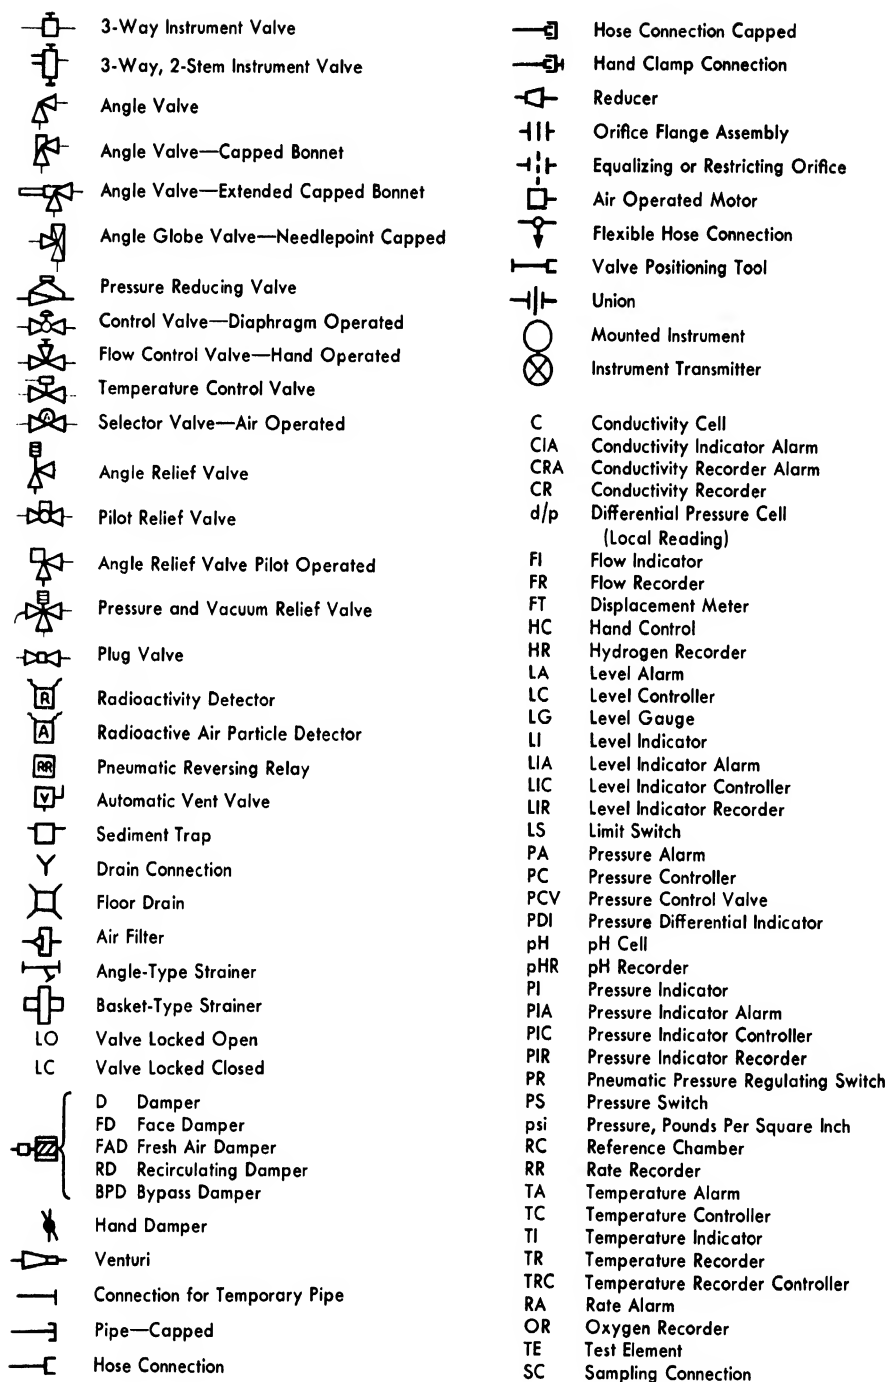 3-Way Instrument Valve
3-Way, 2-Stem Instrument Valve
Angle Valve
Angle Valve—Capped Bonnet
Angle Valve—Extended Capped Bonnet
Angle Globe Valve—Needlepoint Capped
Pressure Reducing Valve
Control Valve—Diaphragm Operated
Flow Control Valve—Hand Operated
Temperature Control Valve
A Selector Valve—Air Operated
Angle Relief Valve
Pilot Relief Valve
Angle Relief Valve Pilot Operated
Pressure and Vacuum Relief Valve
Plug Valve
R Radioactivity Detector
A Radioactive Air Particle Detector
RR Pneumatic Reversing Relay
V Automatic Vent Valve
Sediment Trap
Drain Connection
Floor Drain
Air Filter
Angle-Type Strainer
Basket-Type Strainer
LO Valve Locked Open
LC Valve Locked Closed
D Damper
FD Face Damper
FAD Fresh Air Damper
RD Recirculating Damper
BPD Bypass Damper
Hand Damper
Venturi
Connection for Temporary Pipe
Pipe—Capped
Hose Connection
Hose Connection Capped
Hand Clamp Connection
Reducer
Orifice Flange Assembly
Equalizing or Restricting Orifice
Air Operated Motor
Flexible Hose Connection
Valve Positioning Tool
Union
Mounted Instrument
Instrument Transmitter
C Conductivity Cell
CIA Conductivity Indicator Alarm
CRA Conductivity Recorder Alarm
CR Conductivity Recorder
d/p Differential Pressure Cell
(Local Reading)
FI Flow Indicator
FR Flow Recorder
FT Displacement Meter
HC Hand Control
HR Hydrogen Recorder
LA Level Alarm
LC Level Controller
LG Level Gauge
LI Level Indicator
LIA Level Indicator Alarm
LIC Level Indicator Controller
LIR Level Indicator Recorder
LS Limit Switch
PA Pressure Alarm
PC Pressure Controller
PCV Pressure Control Valve
PDI Pressure Differential Indicator
pH pH Cell
pHR pH Recorder
PI Pressure Indicator
PIA Pressure Indicator Alarm
PIC Pressure Indicator Controller
PIR Pressure Indicator Recorder
PR Pneumatic Pressure Regulating Switch
PS Pressure Switch
psi Pressure, Pounds Per Square Inch
RC Reference Chamber
RR Rate Recorder
TA Temperature Alarm
TC Temperature Controller
TI Temperature Indicator
TR Temperature Recorder
TRC Temperature Recorder Controller
RA Rate Alarm
OR Oxygen Recorder
TE Test Element
SC Sampling Connection